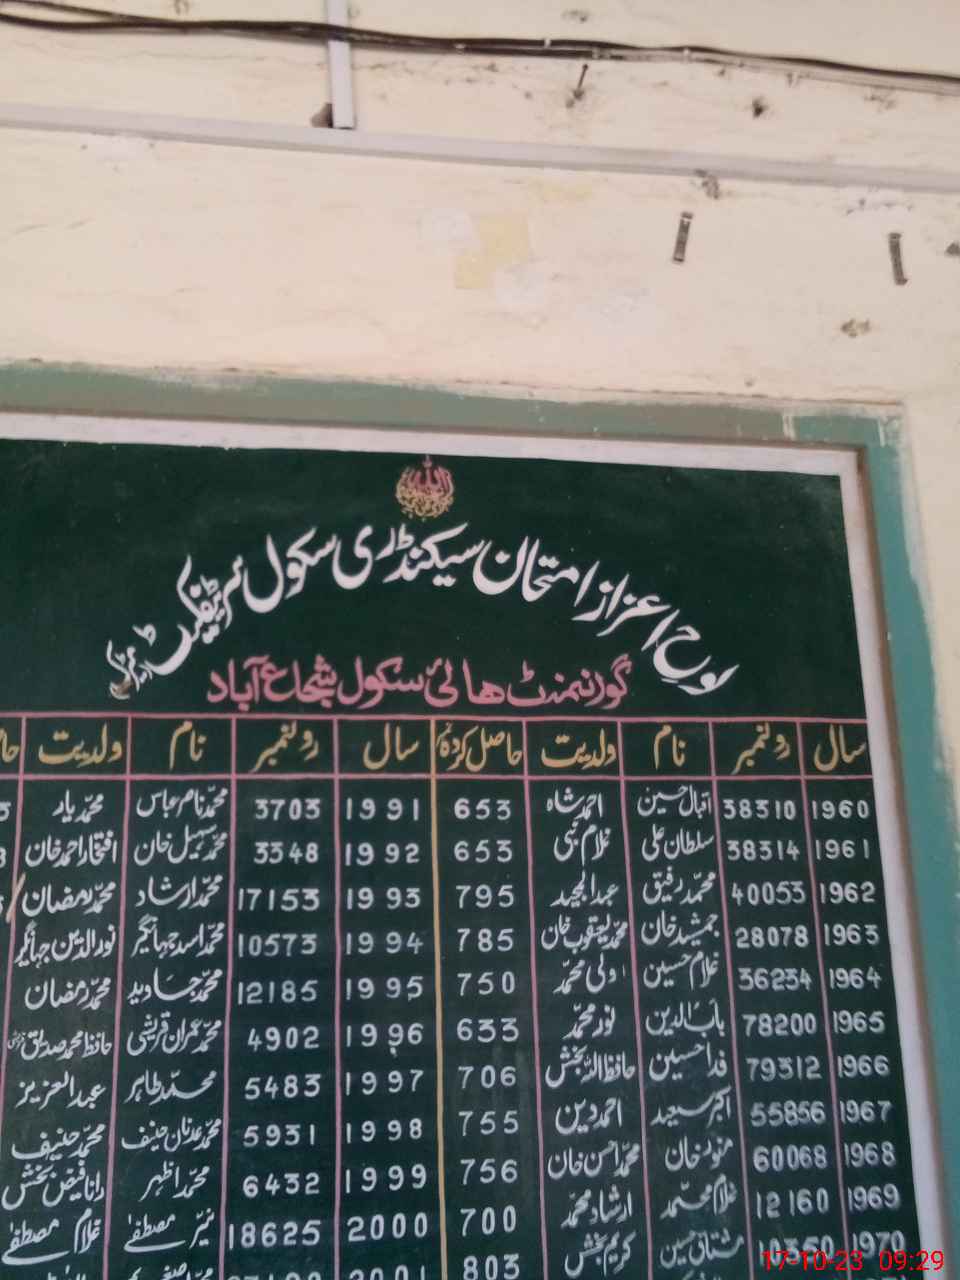 لوحِ اعزاز امتحان سیکنڈری سکول سرٹیفکیٹ
گورنمنٹ ہائی سکول شجاع آباد
سال رولنمبر نام ولدیت حاصل کردہ سال رولنمبر نام ولدیت
1960 38310 اقبال حسین احمد شاہ 653 1991 3703 محمد ناصر عباس محمد یار
1961 38314 سلطان علی غلام نبی 653 1992 3348 محمد سہیل خان افتخار احمد خان
1962 40053 محمد رفیق عبدالمجید 795 1993 17153 محمد ارشاد محمد رمضان
1963 28078 جمشید خان محمد یعقوب خان 785 1994 10573 محمد اسد جہانگیر نورالدین جہانگیر
1964 36234 غلام حسین ولی محمد 750 1995 12185 محمد جاوید محمد رمضان
1965 78200 باب الدین نور محمد 633 1996 4902 محمد عمران قریشی حافظ محمد صدیق
1966 79312 فدا حسین حافظ اللہ بخش 706 1997 5483 محمد طاہر عبدالعزیز
1967 55856 اکبر سعید احمد دین 755 1998 5931 محمد عدنان حنیف محمد حنیف
1968 60068 منور خان محمد احسن خان 756 1999 6432 محمد اظہر رانا فیض بخش
1969 12160 غلام محمد ارشاد محمد 700 2000 18625 نیّر مصطفےٰ غلام مصطفےٰ
1970 10350 مشتاق حسین کریم بخش 803 2001
17-10-23 09:29